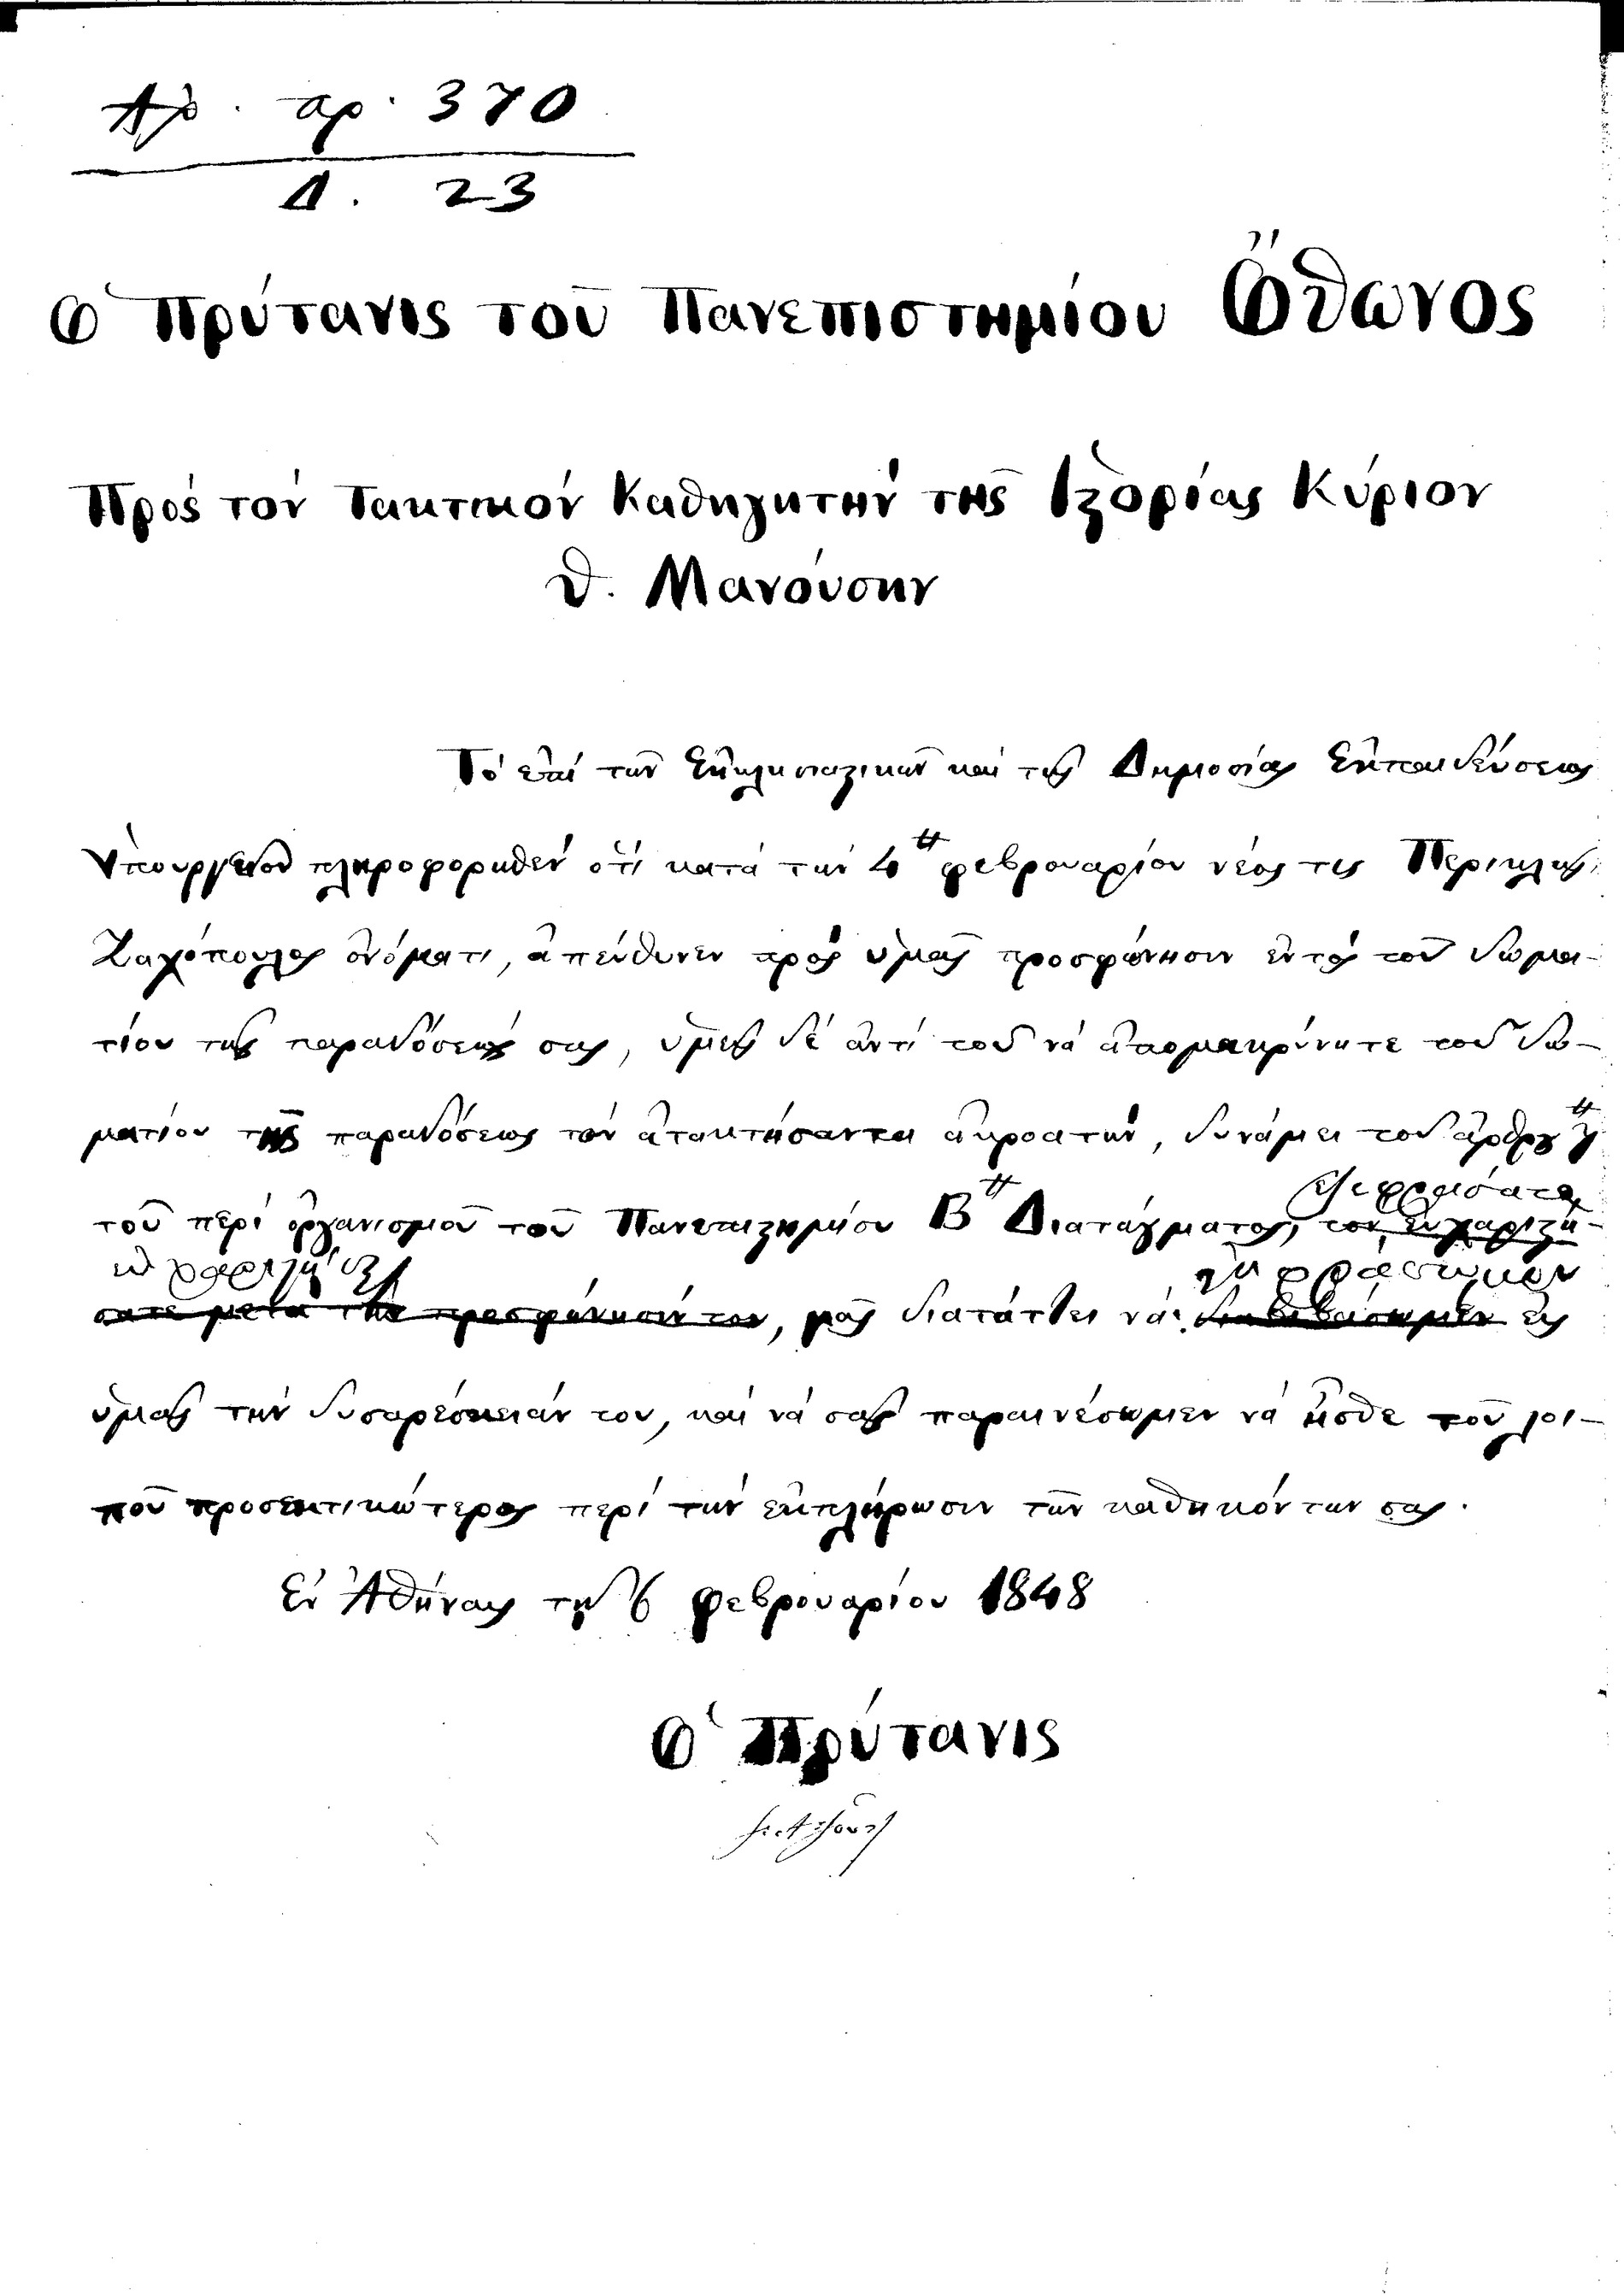 Αρ. αρ. 370
Δ. 23
Ὁ Πρύτανις τοῦ Πανεπιστημίου Ὄθωνος
Πρὸς τὸν Τακτικὸν Καθηγητὴν τῆς Ἱστορίας Κύριον
Θ. Μανούσην
Τὸ ἐπὶ τῶν Ἐκκλησιαστικῶν καὶ τῆς Δημοσίας Ἐκπαιδεύσεως
Ὑπουργεῖον πληροφορηθὲν ὅτι κατὰ τὴν 4η φεβρουαρίου νέος τις Περικλῆς
Ζαχόπουλος ὀνόματι, ἀπεύθυνεν πρὸς ὑμᾶς προσφώνησιν ἐντὸς τοῦ δωμα-
τίου τῆς παραδόσεώς σας, ὑμεῖς δὲ ἀντὶ τοῦ νὰ ἀπομακρύνητε τοῦ δω-
ματίου τῆς παραδόσεως τὸν ἀτακτήσαντα ἀκροατὴν, δυνάμει τοῦ ἄρθρου
τοῦ περὶ ὀργανισμοῦ τοῦ Πανεπιστημίου Β Διατάγματος, τὸν εὐχαριστή-
σατε μετὰ τὴν προσφώνησίν του, μᾶς διατάττει νὰ διαβιβάσωμεν εἰς
ἐκφράσωμεν
ὑμᾶς τὴν δυσαρέσκειάν του, καὶ νὰ σᾶς παραινέσωμεν νὰ ἦσθε τοῦ λοι-
ποῦ προσεκτικώτερος περὶ τὴν ἐκπλήρωσιν τῶν καθηκόντων σας.
Ἐν Ἀθήναις τῇ 6 φεβρουαρίου 1848
Ὁ Πρύτανις